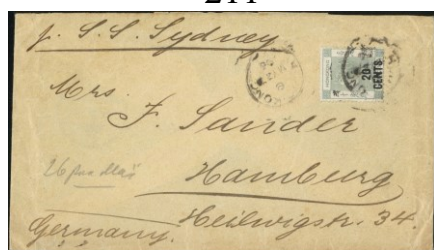 211
p. S.S. Sydney
20 CENTS
Mrs.
F. Sander
Hamburg
Heilwigstr. 34.
Germany.